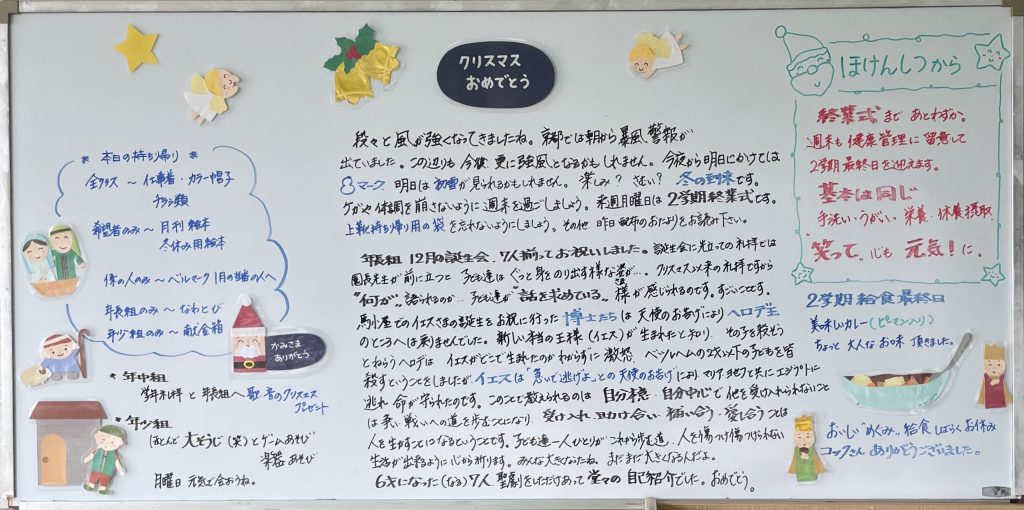 クリスマス
おめでとう
* 本日の持ち帰り *
全クラス ～ 仕事着・カラー帽子
希望者のみ ～ 月刊絵本
冬休み用絵本
係の人のみ ～ ベルマーク 1月の当番の人へ
年長組のみ ～ なわとび
年少組のみ ～ 献金箱
かみさま
ありがとう
* 年中組
礼拝と 年長組へ 歌・音のクリスマス
プレゼント
* 年少組
ほとんど 大そうじ(笑)とゲームあそび
楽器あそび
月曜日 元気で会おうね。
段々と風が強くなってきましたね。京都では朝から暴風警報が
出ていました。この辺りも今後更に強風となるかもしれません。今夜から明日にかけては
8マーク 明日は初雪が見られるかもしれません。楽しみ? さむい? 冬の到来です。
ケガや体調を崩さないように週末を過ごしましょう。来週月曜日は2学期終業式です。
上靴持ち帰り用の袋を忘れないようにしましょう。その他 昨日配布のおたよりをお読み下さい。
年長組 12月の誕生会。7人揃ってお祝いしました。誕生会に先立っての礼拝では
園長先生が前に立つと 子ども達は ぐっと身をのり出す様な姿が…。クリスマス以来の礼拝ですから
"何か"語られるのが… 子ども達が"話を求めている"様が感じられるのです。すごいことです。
馬小屋でのイエスさまの誕生をお祝いに行った 博士たちは 天使のお告げにより ヘロデ王
のところへは戻りませんでした。新しい本当の王様(イエス)が生まれたと知り、その子を殺そう
とねらうヘロデは イエスがどこで生まれたのかわからずに激怒。ベツレヘムの2才以下の子どもを皆
殺すということをしましたが、イエスは「急いで逃げよ」との天使のお告げにより マリア・ヨセフと共にエジプトに
逃れ 命が守られたのです。このことで教えられるのは 自分本意・自分中心で 他を受け入れられないこと
は 争い、戦いへの道を歩むことになり、受け入れ・助け合い・補い合う・愛し合うことは
人を生かすことになるということです。子ども達一人ひとりがこれから歩む道、人を傷つけ傷つけられない
生活が出来るように心から祈ります。みんな大きくなったね。まだまだ大きくなるんだよ。
6才になった(なる)7人 聖劇をしただけあって 堂々の自己紹介でした。おめでとう。
ほけんしつから
終業式まで あとわずか。
週末も健康管理に留意して
2学期最終日を迎えます。
基本は同じ
手洗い・うがい、栄養・休養摂取
"笑って"、心も 元気!に。
2学期 給食最終日
美味しいカレー(ピーマン入り)
ちょっと 大人なお味 頂きました。
おいしい"めぐみ"。給食 しばらくお休み
コックさん ありがとうございました。